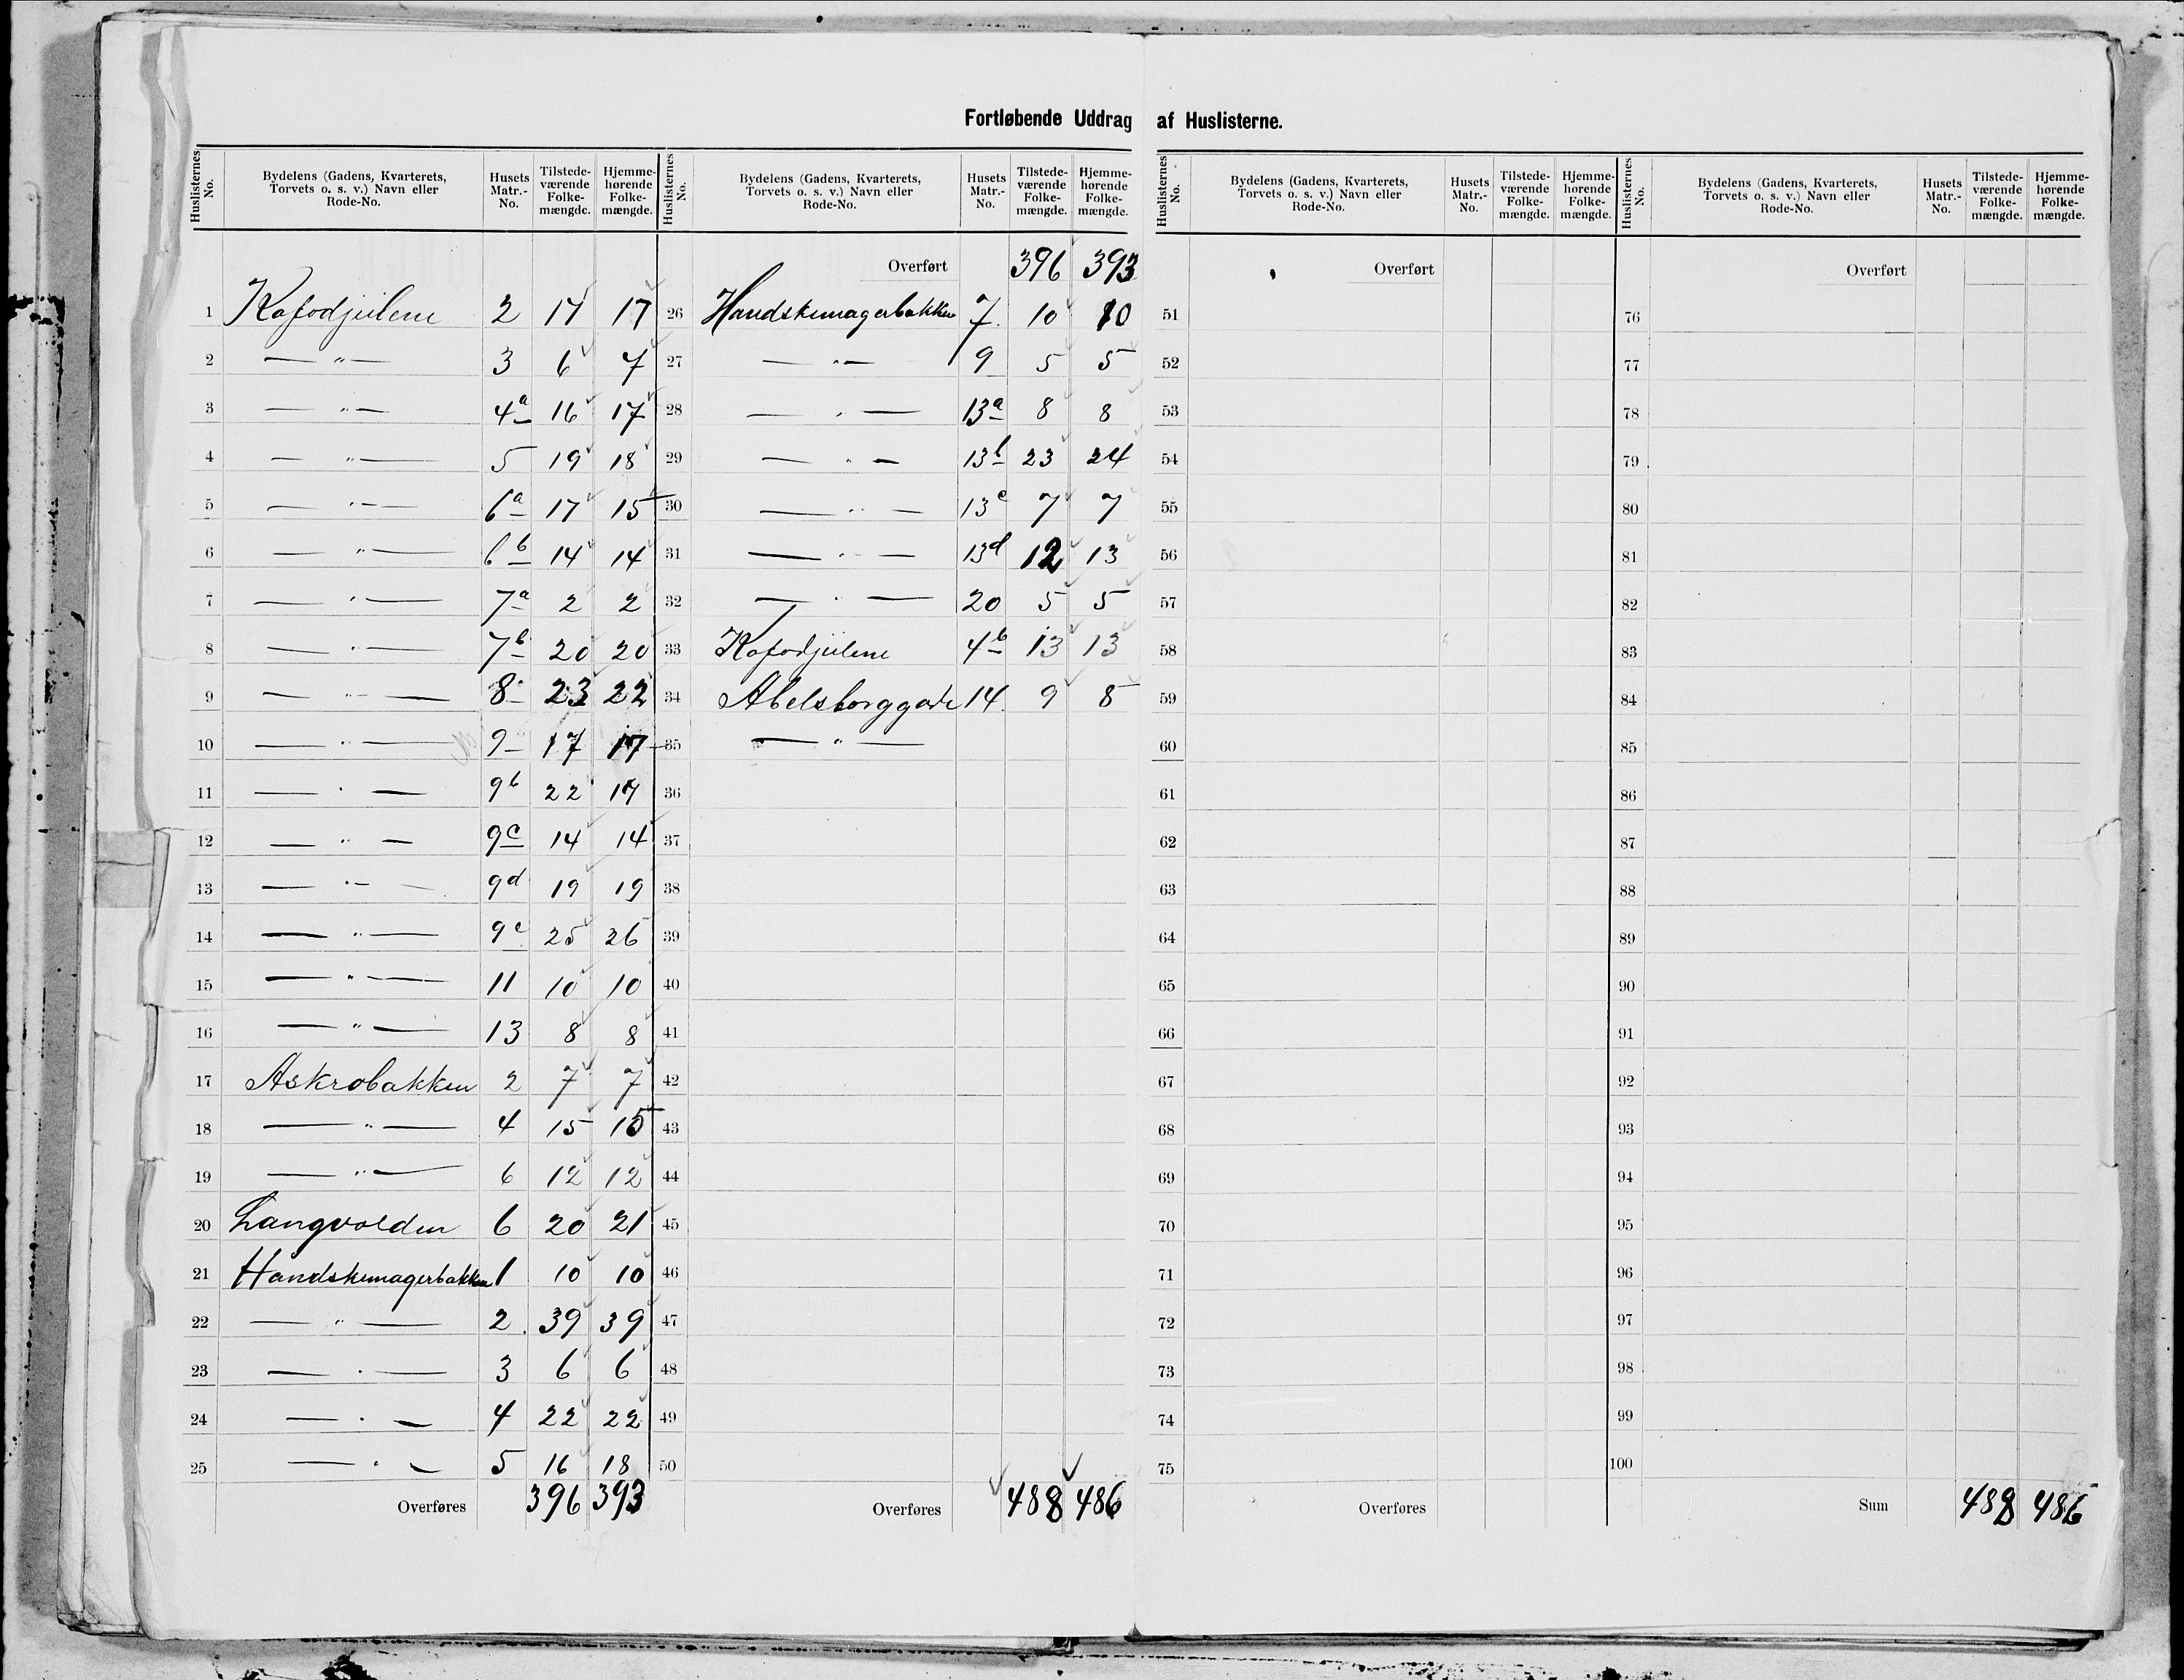 Fortløbende Uddrag af Huslisterne.
Huslisternes No. Bydelens (Gadens, Kvarterets, Torvets o. s. v.) Navn eller Rode-No. Husets Matr.-No. Tilstedeværende Folkemængde. Hjemmehørende Folkemængde.
1 Kofodjulene 2 17 17
2 — " — 3 6 7
3 — " — 4a 16 17
4 — " — 5 19 18
5 — " — 6a 17 15
6 — " — 6b 14 14
7 — " — 7a 2 2
8 — " — 7b 20 20
9 — " — 8 23 22
10 — " — 9 17 17
11 — " — 9b 22 17
12 — " — 9c 14 14
13 — " — 9d 19 19
14 — " — 9e 25 26
15 — " — 11 10 10
16 — " — 13 8 8
17 Askrobakken 2 7 7
18 — " — 4 15 15
19 — " — 6 12 12
20 Langvolden 6 20 21
21 Handskemagerbakken 1 10 10
22 — " — 2 39 39
23 — " — 3 6 6
24 — " — 4 22 22
25 — " — 5 16 18
Overføres 396 393
Huslisternes No. Bydelens (Gadens, Kvarterets, Torvets o. s. v.) Navn eller Rode-No. Husets Matr.-No. Tilstedeværende Folkemængde. Hjemmehørende Folkemængde.
Overført 396 393
26 Handskemagerbakken 7 10 10
27 — " — 9 5 5
28 — " — 13a 8 8
29 — " — 13b 23 24
30 — " — 13c 7 7
31 — " — 13d 12 13
32 — " — 20 5 5
33 Kofodjulene 4b 13 13
34 Abelsborggade 14 9 8
35 — " —
36
37
38
39
40
41
42
43
44
45
46
47
48
49
50
Overføres 488 486
Huslisternes No. Bydelens (Gadens, Kvarterets, Torvets o. s. v.) Navn eller Rode-No. Husets Matr.-No. Tilstedeværende Folkemængde. Hjemmehørende Folkemængde.
Overført
51
52
53
54
55
56
57
58
59
60
61
62
63
64
65
66
67
68
69
70
71
72
73
74
75
Overføres
Huslisternes No. Bydelens (Gadens, Kvarterets, Torvets o. s. v.) Navn eller Rode-No. Husets Matr.-No. Tilstedeværende Folkemængde. Hjemmehørende Folkemængde.
Overført
76
77
78
79
80
81
82
83
84
85
86
87
88
89
90
91
92
93
94
95
96
97
98
99
100
Sum 488 486